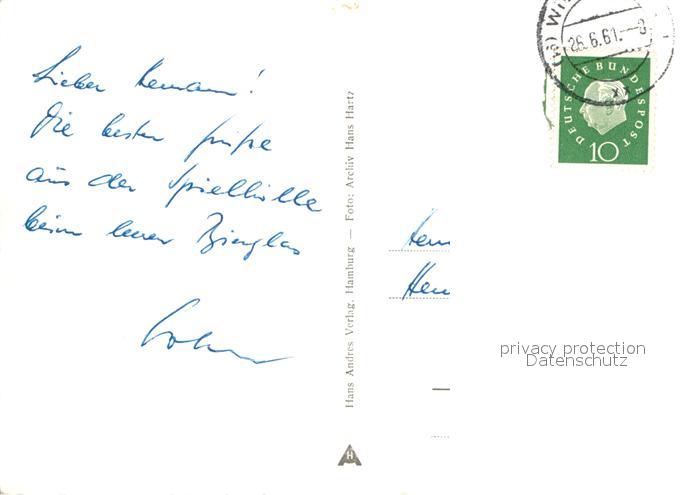 Lieber Hermann!
Die besten Grüße
aus der Spielhölle
beim leeren Bierglas
Hans Andres Verlag, Hamburg — Foto: Archiv Hans Hartz
H
(16) WI
26.6.61.-8
DEUTSCHE BUNDESPOST
10
Herr
privacy protection
Datenschutz